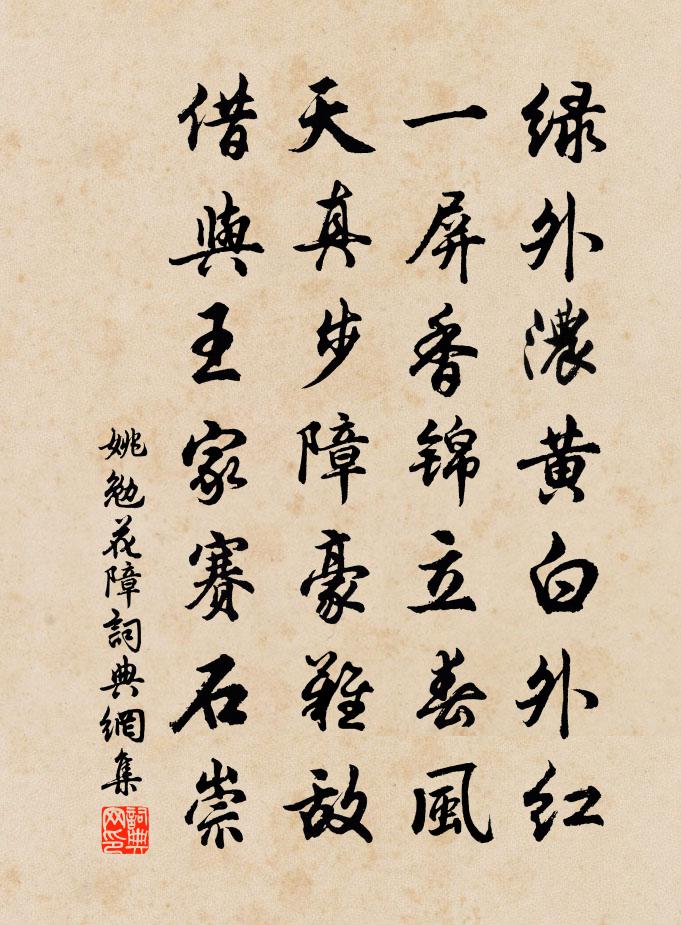 绿外濃黄白外红
一屏香锦立春風
天真步障豪難敌
借與王家賽石崇
姚勉花障詞典網集
詞典网印